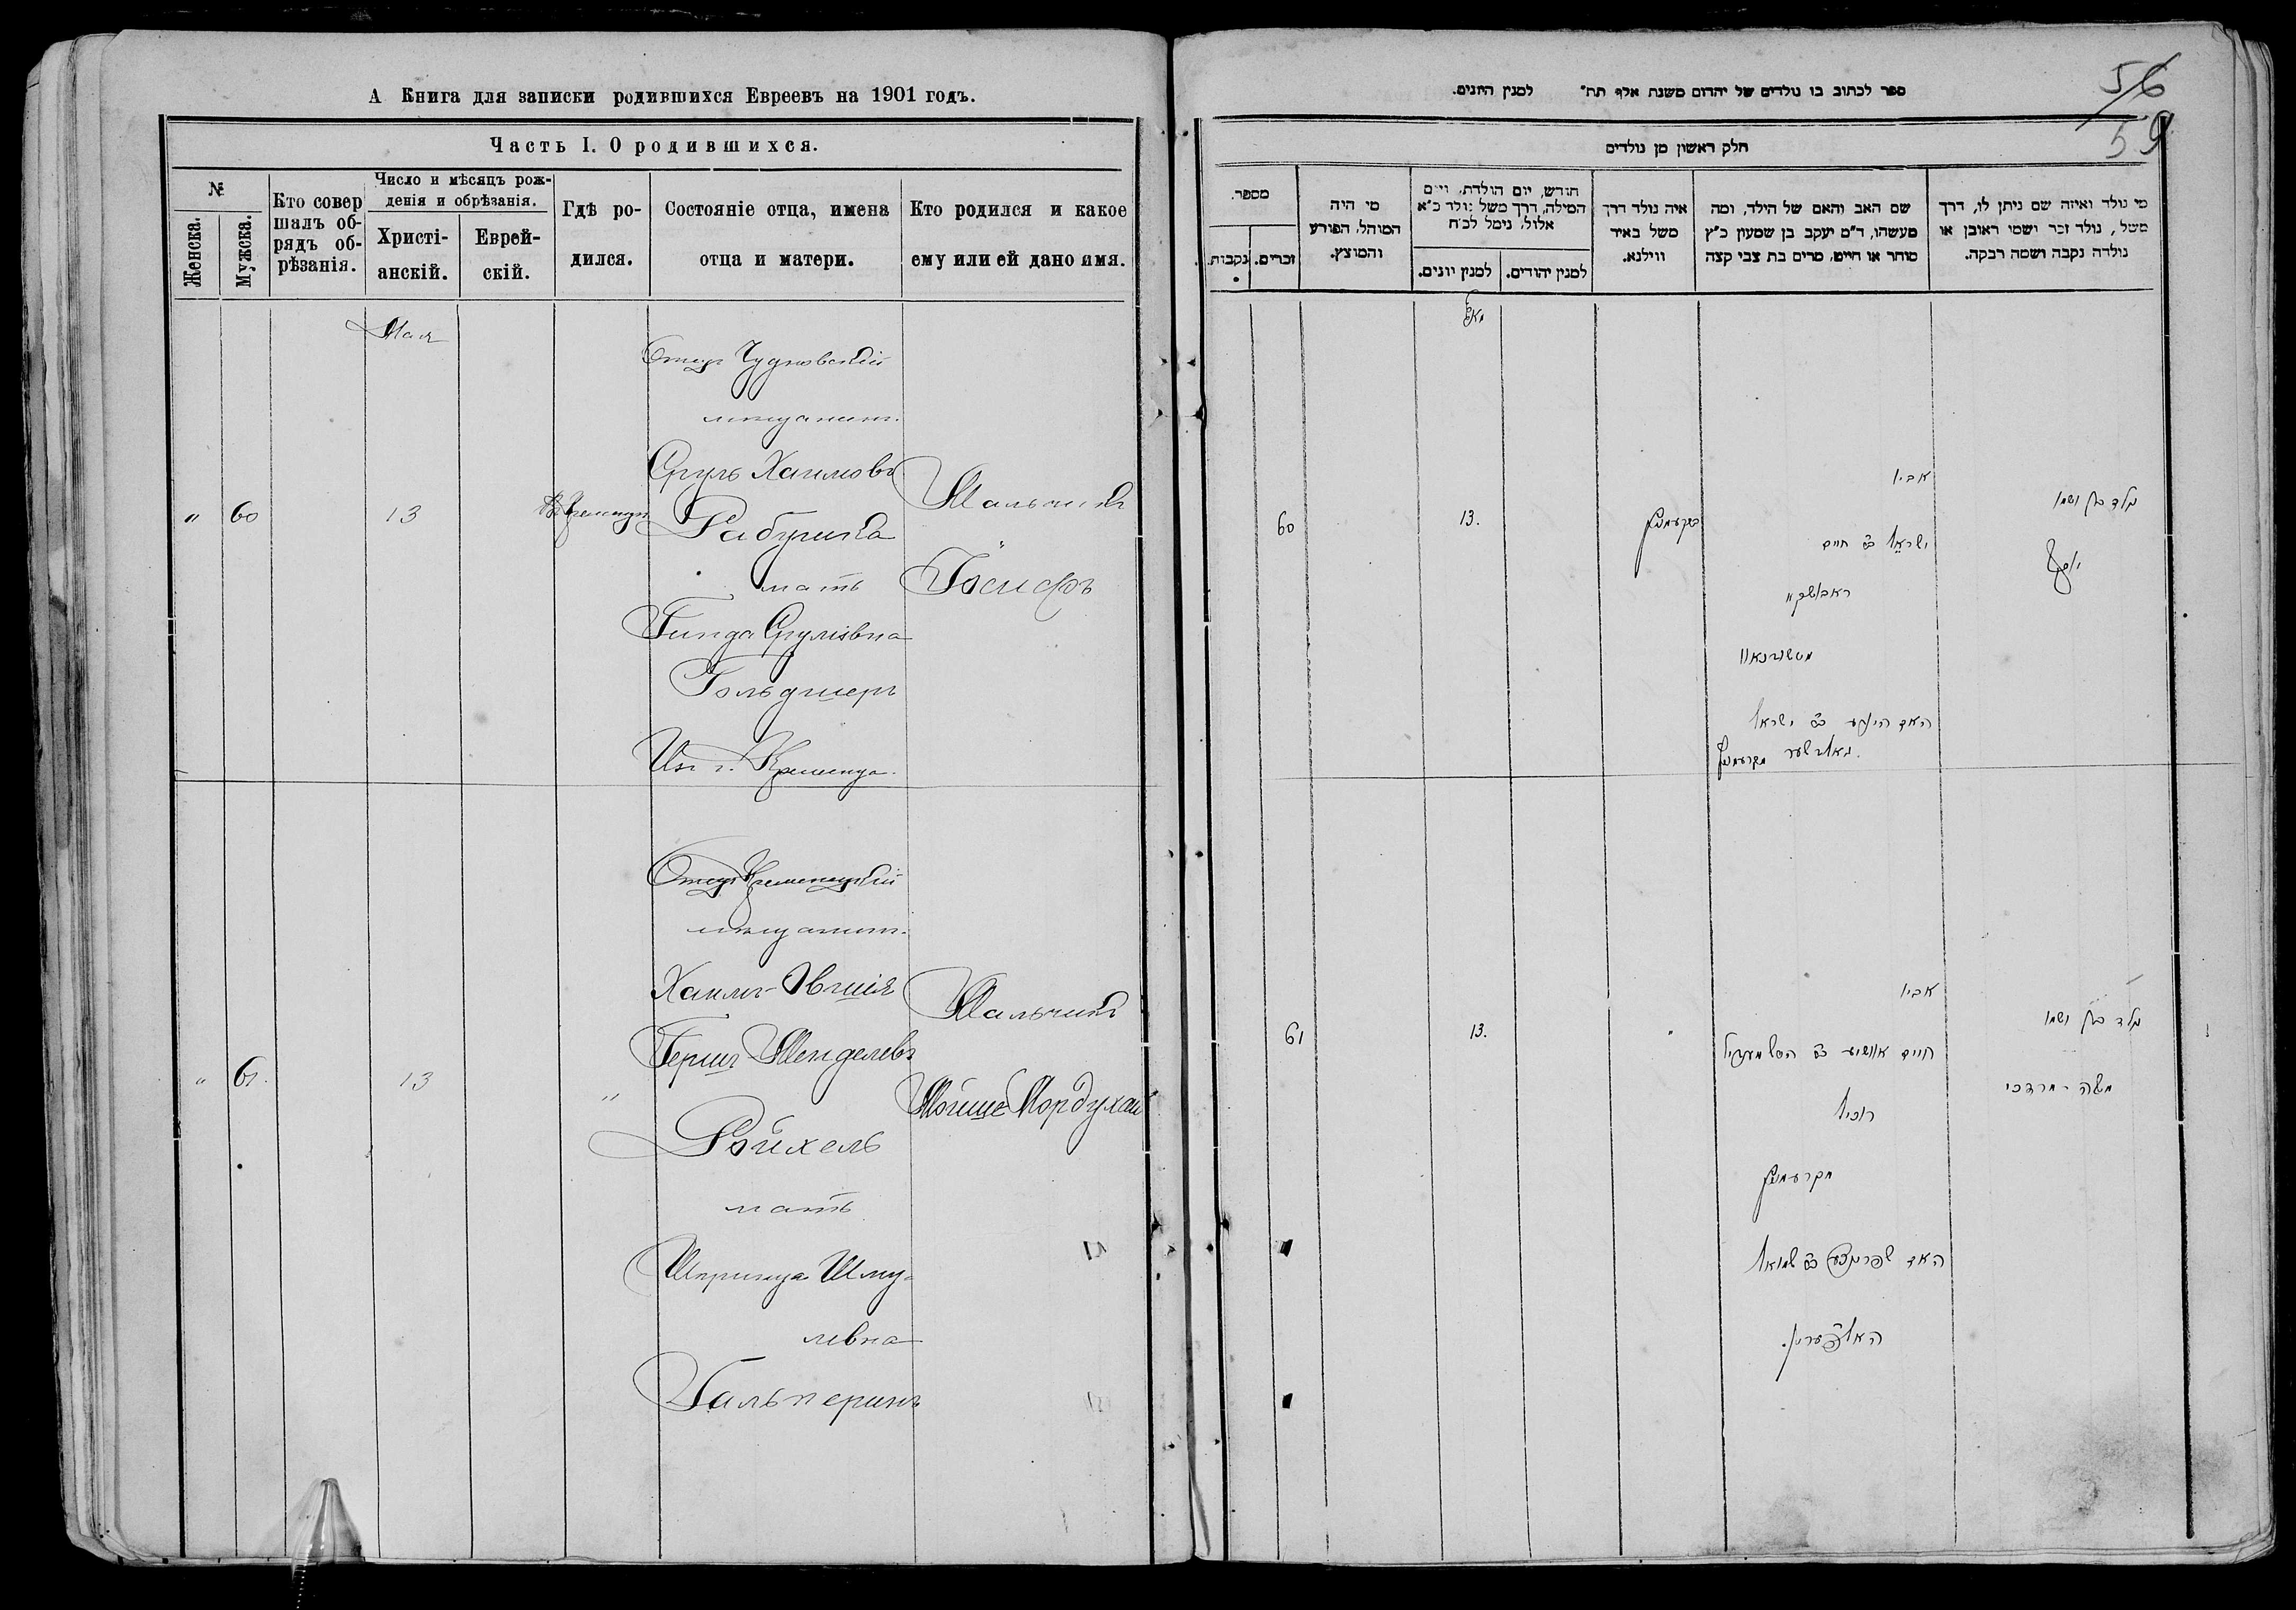 А Книга для записки родившихся Евреевъ на 1901 годъ.
Часть I. О родившихся.
№
Женска.
Мужска.
Кто совер
шалъ об-
рядъ об-
рѣзанія.
Число и мѣсяцъ рож-
денія и обрѣзанія.
Христі-
анскій.
Еврей-
скій.
Гдѣ ро-
дился.
Состояніе отца, имена
отца и матери.
Кто родился и какое
ему или ей дано имя.
Мая
" 60
13
Отецъ Чудновскій
мѣщанин.
Сруль Хаимовъ
Рабушка
мать
Гинда Срулiовна
Гольдшеръ
Из г. Кременца.
Мальчикъ
Іосифъ
" 61.
13
"
Отецъ Кременецкій
мѣщанин.
Хаимъ-Овшія
Гершъ-Менделевъ
Ройхель
мать
Шпринца Шму-
левна
Гальперинъ
Мальчикъ
Мойше Мордухай
56
59
ספר לכתוב בו נולדים של יהודים משנת אלף תת" למנין היונים.
חלק ראשון מן נולדים
מי נולד ואיזה שם ניתן לו, דרך
משל, נולד זכר ושמו ראובן או
נולדה נקבה ושמה רבקה.
שם האב והאם של הילד, ומה
מעשהו, ד"מ יעקב בן שמעון כ"ץ
סוחר או חייט, מרים בת צבי קצה
איה נולד דרך
משל באיר
ווילנא.
חודש, יום הולדת, ויום
המילה, דרך משל נולד כ"א
אלול, נימל לכ"ח
למנין יהודים.
למנין יונים.
מי היה
המוהל, הפורע
והמוצץ.
מספר.
זכרים.
נקבות.
מאי
60
13.
אביו
ישראל ב"ר חיים
נולד בן ושמו
יוסף
האם הינדע ב"ר ישראל
61
13.
"
אביו
נולד בן ושמו
משה-מרדכי
מקרעמניץ
האם שפרינצע ב"ר שמואל
האלפערין.